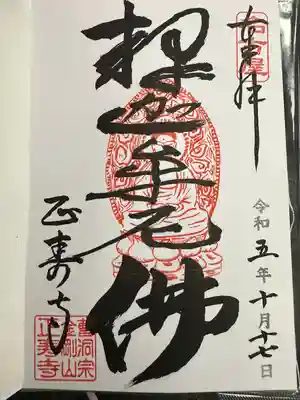 奉拝
令和五年十月十七日
釋迦牟尼佛
正寿寺
曹洞宗
金剛山
正寿寺